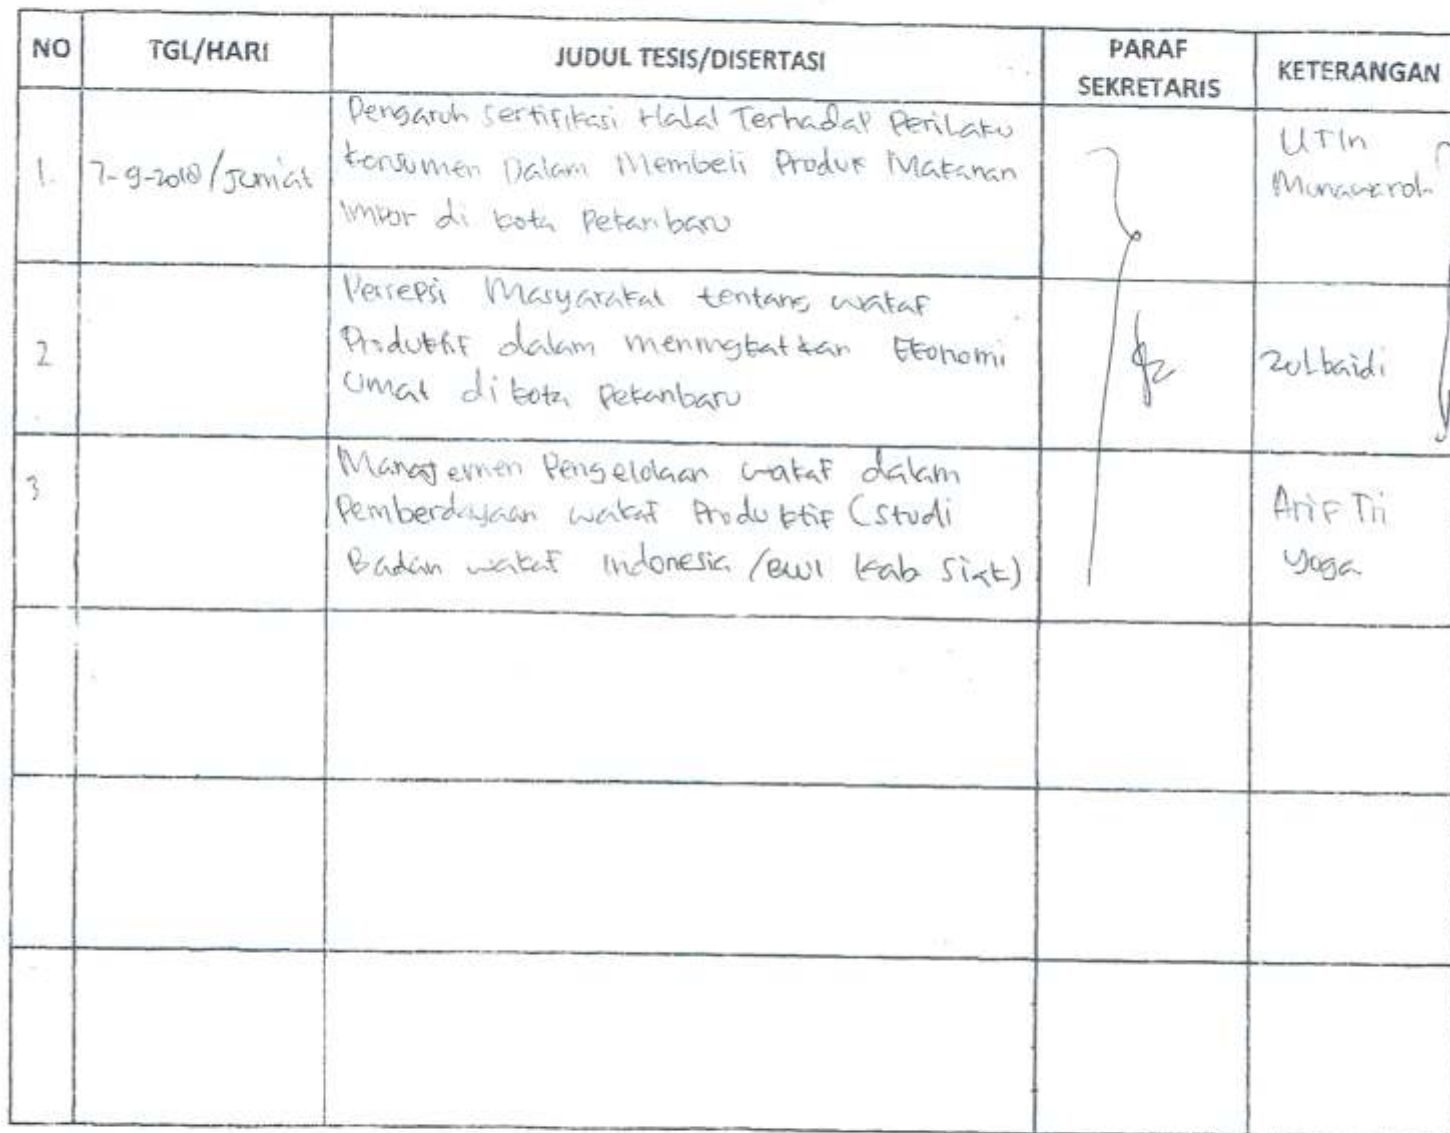 NO TGL/HARI JUDUL TESIS/DISERTASI PARAF SEKRETARIS KETERANGAN
1. 7-9-2018/Jum'at
Pengaruh Sertifikasi Halal Terhadap Perilaku
Konsumen Dalam Membeli Produk Makanan
Impor di kota Pekanbaru
UTIn
Munawaroh
2
Persepsi Masyarakat tentang wakaf
Produktif dalam meningkatkan Ekonomi
Umat di kota Pekanbaru
Zulbaidi
3
Manajemen Pengelolaan wakaf dalam
Pemberdayaan wakaf Produktif (Studi
Badan wakaf Indonesia /BWI Kab Siak)
Arif Tri
Yoga